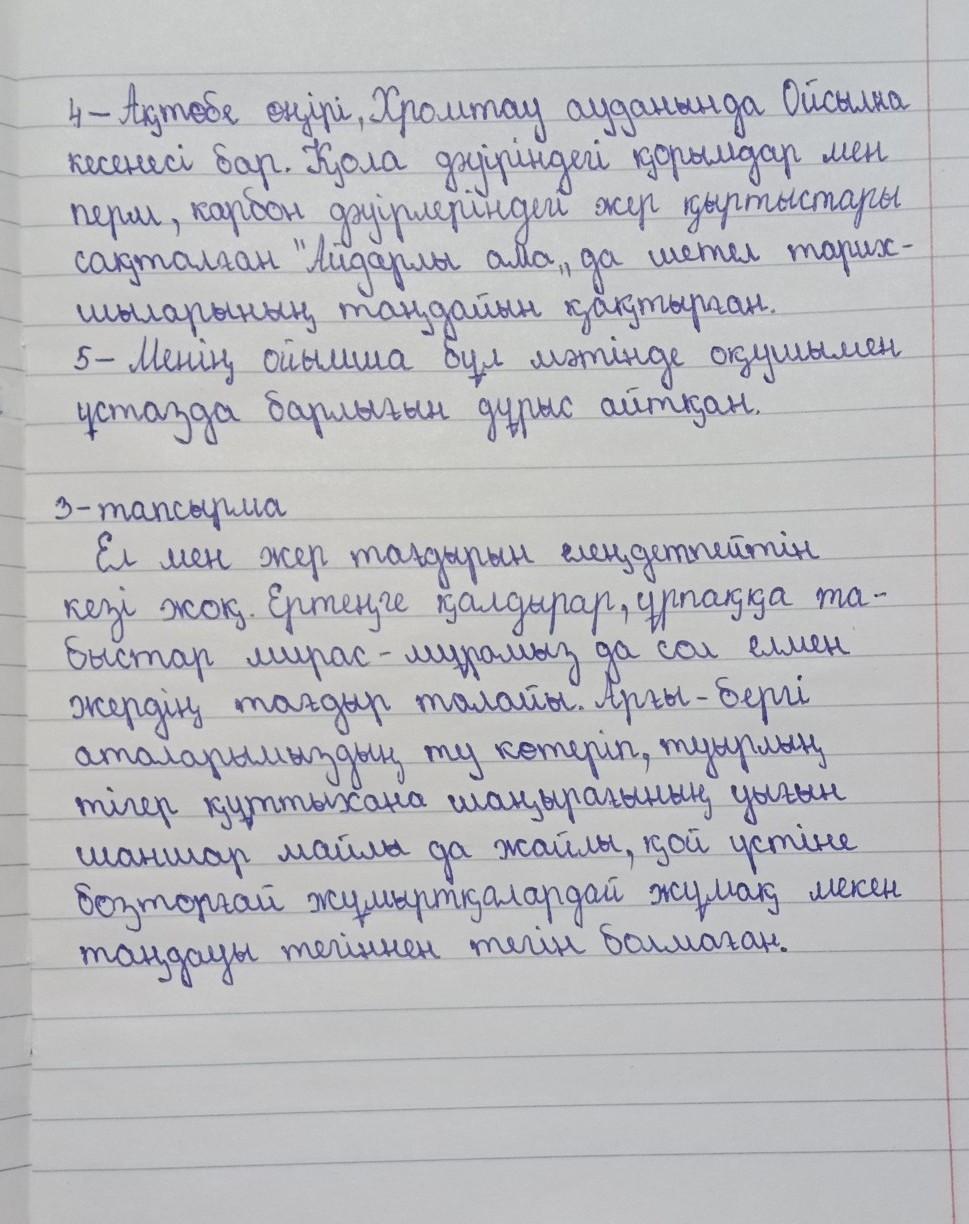 4 – Ақтөбе өңірі, Хромтау ауданында Ойсылқа
кесенесі бар. Қола дәуіріндегі қорымдар мен
перм, карбон дәуірлеріндегі жер қыртыстары
сақталған "Айдарлы ама„ да шетел тарих-
шыларының таңдайын қақтырған.
5 – Менің ойымша бұл мәтінде оқушымен
ұстазда барлығын дұрыс айтқан.
3-тапсырма
Ел мен жер тағдырын елеңдетпейтін
кезі жоқ. Ертеңге қалдырар, ұрпаққа та-
быстар мирас-мұрамыз да сол елмен
жердің тағдыр талайы. Арғы-бергі
аталарымыздың ту көтеріп, туырлың
тігер құттыхана шаңырағының уығын
шаншар майлы да жайлы, қой үстіне
бозторғай жұмыртқалардай жұмақ мекен
таңдауы тегіннен тегін болмаған.